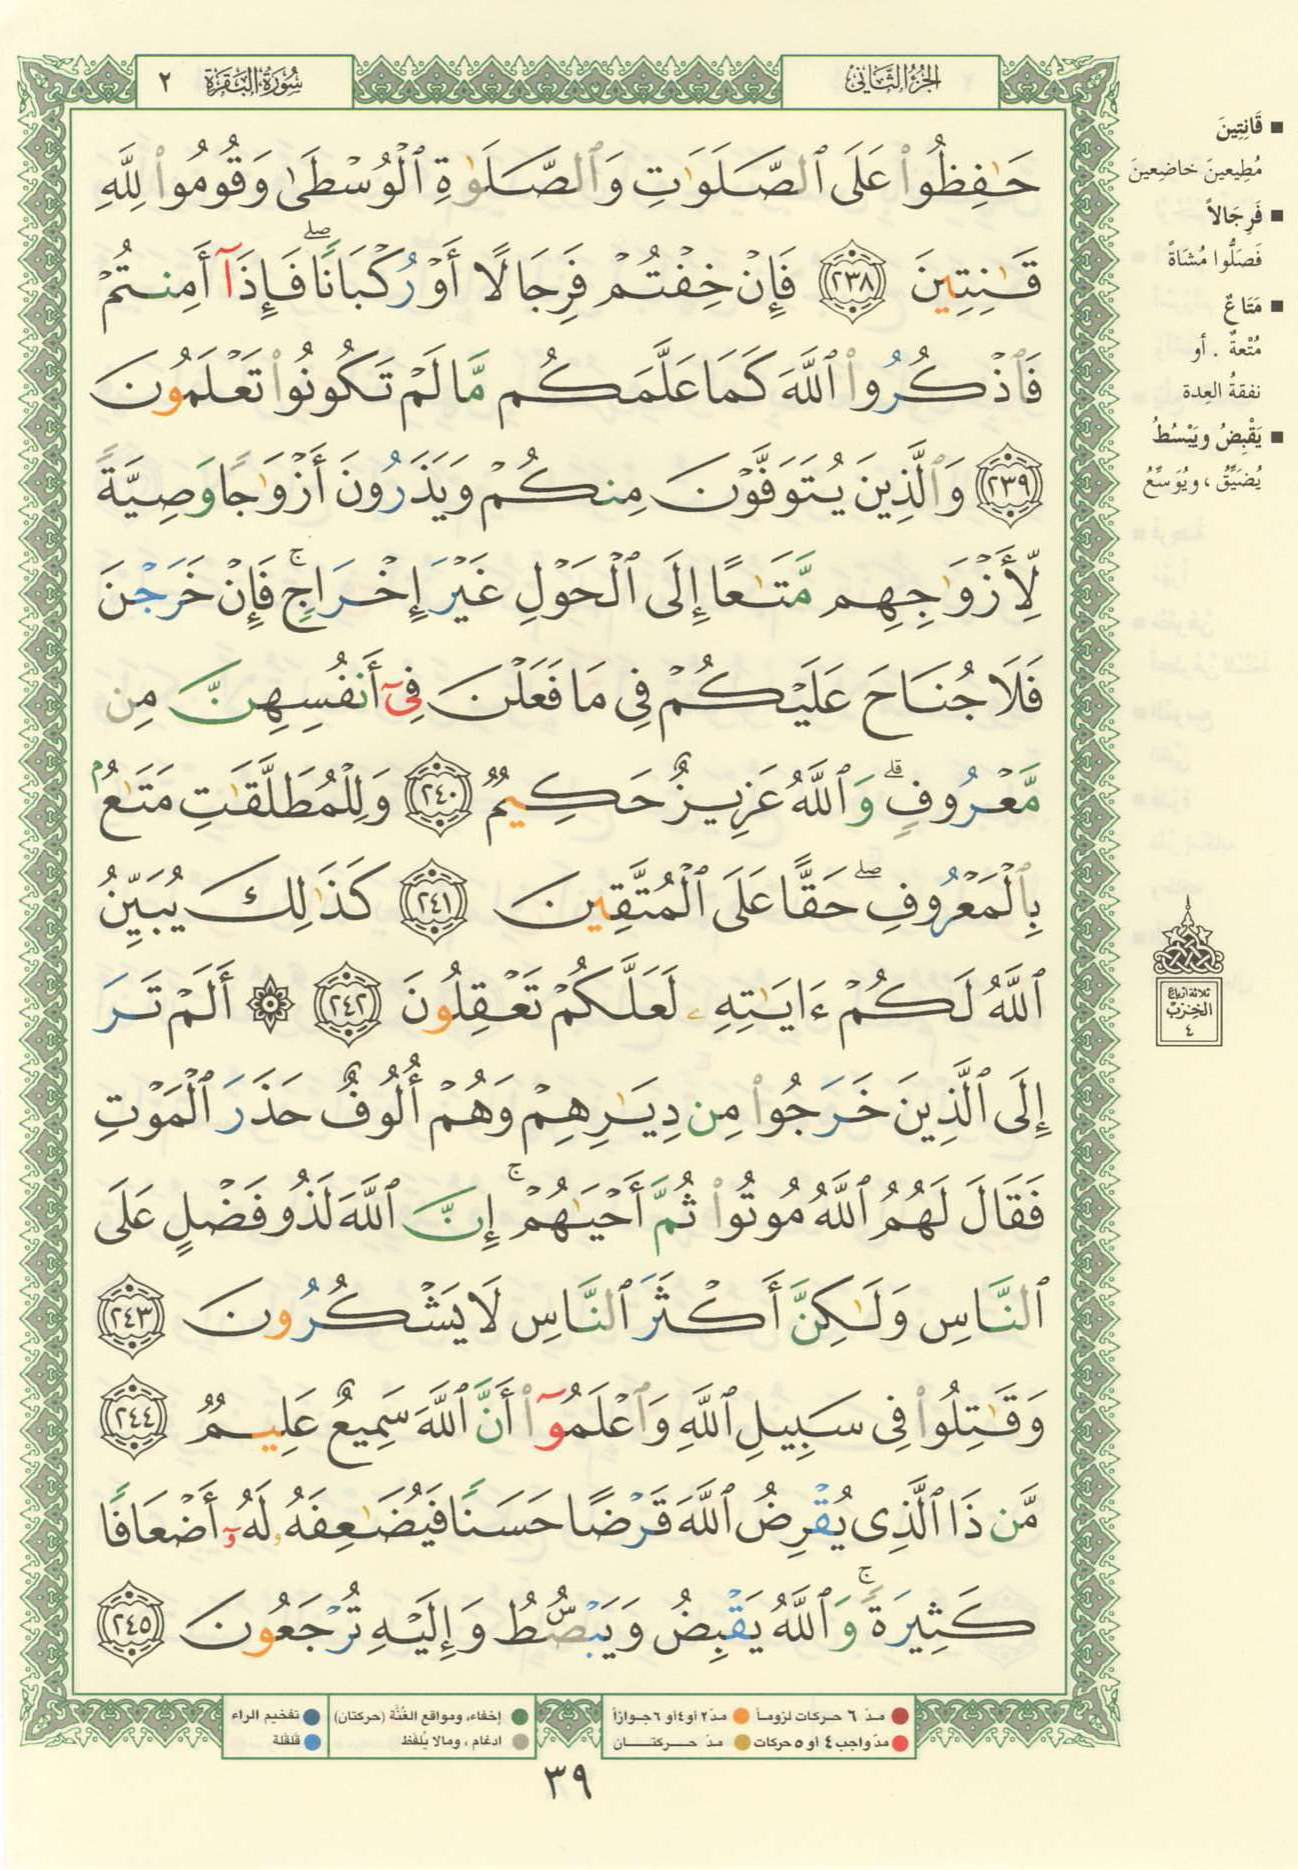 الجزء الثاني
سورة البقرة ٢
حَـٰفِظُوا۟ عَلَى ٱلصَّلَوَٰتِ وَٱلصَّلَوٰةِ ٱلْوُسْطَىٰ وَقُومُوا۟ لِلَّهِ
قَـٰنِتِينَ ٢٣٨ فَإِنْ خِفْتُمْ فَرِجَالًا أَوْ رُكْبَانًا ۖ فَإِذَآ أَمِنتُمْ
فَٱذْكُرُوا۟ ٱللَّهَ كَمَا عَلَّمَكُم مَّا لَمْ تَكُونُوا۟ تَعْلَمُونَ
٢٣٩ وَٱلَّذِينَ يُتَوَفَّوْنَ مِنكُمْ وَيَذَرُونَ أَزْوَٰجًا وَصِيَّةً
لِّأَزْوَٰجِهِم مَّتَـٰعًا إِلَى ٱلْحَوْلِ غَيْرَ إِخْرَاجٍ ۚ فَإِنْ خَرَجْنَ
فَلَا جُنَاحَ عَلَيْكُمْ فِى مَا فَعَلْنَ فِىٓ أَنفُسِهِنَّ مِن
مَّعْرُوفٍ ۗ وَٱللَّهُ عَزِيزٌ حَكِيمٌ ٢٤٠ وَلِلْمُطَلَّقَـٰتِ مَتَـٰعٌۢ
بِٱلْمَعْرُوفِ ۖ حَقًّا عَلَى ٱلْمُتَّقِينَ ٢٤١ كَذَٰلِكَ يُبَيِّنُ
ٱللَّهُ لَكُمْ ءَايَـٰتِهِۦ لَعَلَّكُمْ تَعْقِلُونَ ٢٤٢ ۞ أَلَمْ تَرَ
إِلَى ٱلَّذِينَ خَرَجُوا۟ مِن دِيَـٰرِهِمْ وَهُمْ أُلُوفٌ حَذَرَ ٱلْمَوْتِ
فَقَالَ لَهُمُ ٱللَّهُ مُوتُوا۟ ثُمَّ أَحْيَـٰهُمْ ۚ إِنَّ ٱللَّهَ لَذُو فَضْلٍ عَلَى
ٱلنَّاسِ وَلَـٰكِنَّ أَكْثَرَ ٱلنَّاسِ لَا يَشْكُرُونَ ٢٤٣
وَقَـٰتِلُوا۟ فِى سَبِيلِ ٱللَّهِ وَٱعْلَمُوٓا۟ أَنَّ ٱللَّهَ سَمِيعٌ عَلِيمٌ ٢٤٤
مَّن ذَا ٱلَّذِى يُقْرِضُ ٱللَّهَ قَرْضًا حَسَنًا فَيُضَـٰعِفَهُۥ لَهُۥٓ أَضْعَافًا
كَثِيرَةً ۚ وَٱللَّهُ يَقْبِضُ وَيَبْصُۜطُ وَإِلَيْهِ تُرْجَعُونَ ٢٤٥
■ قَانِتِينَ
مُطِيعينَ خاضِعينَ
■ فَرِجَالاً
فَصَلُّوا مُشَاةً
■ مَتَاعٌ
مُتْعةٌ . أو
نفقةُ العِدة
■ يَقْبِضُ ويَبْسُطُ
يُضَيِّقُ ، ويُوَسِّعُ
ثلاثة أرباع
الحزب
٤
مدّ ٦ حركات لزوماً ● مدّ ٢ أو ٤ أو ٦ جوازاً
مدّ واجب ٤ أو ٥ حركات ● مدّ حـركتـــان
إخفاء، ومواقع الغُنَّة (حركتان)
ادغام ، ومالا يُلفَظ
تفخيم الراء
قلقلة
٣٩